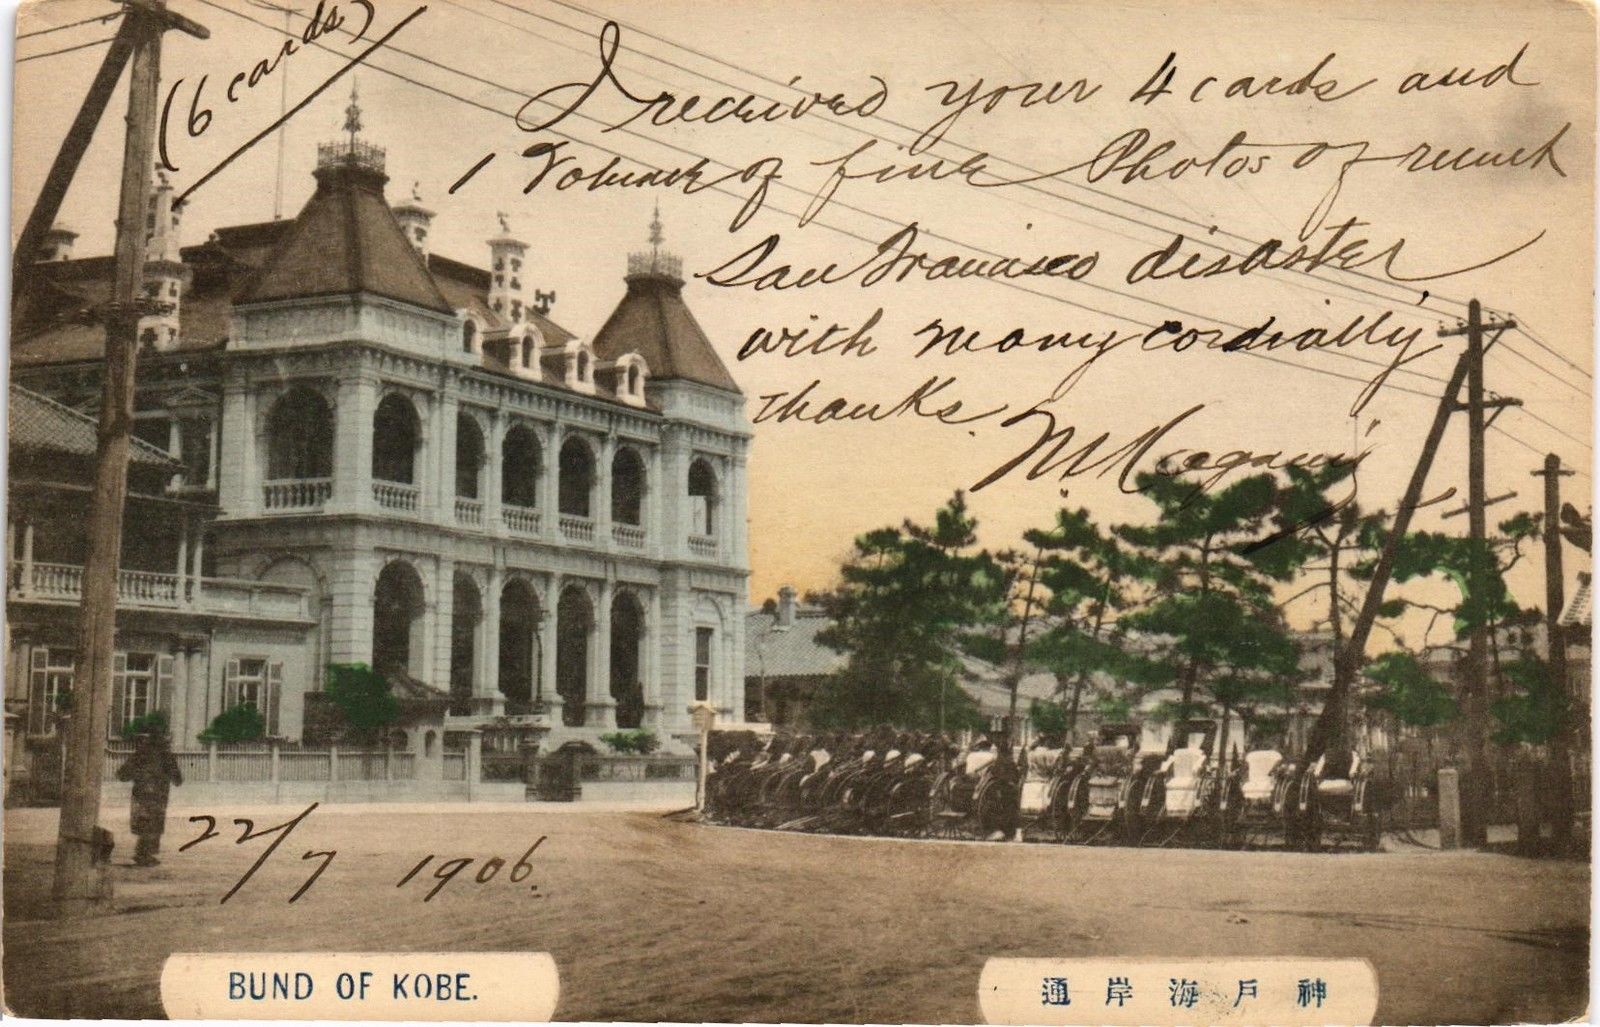 (6 cards)
I received your 4 cards and
1 Volume of fine Photos of recent
San Francisco disaster
with many cordially
thanks.
22/7 1906.
BUND OF KOBE.
通岸海戶神